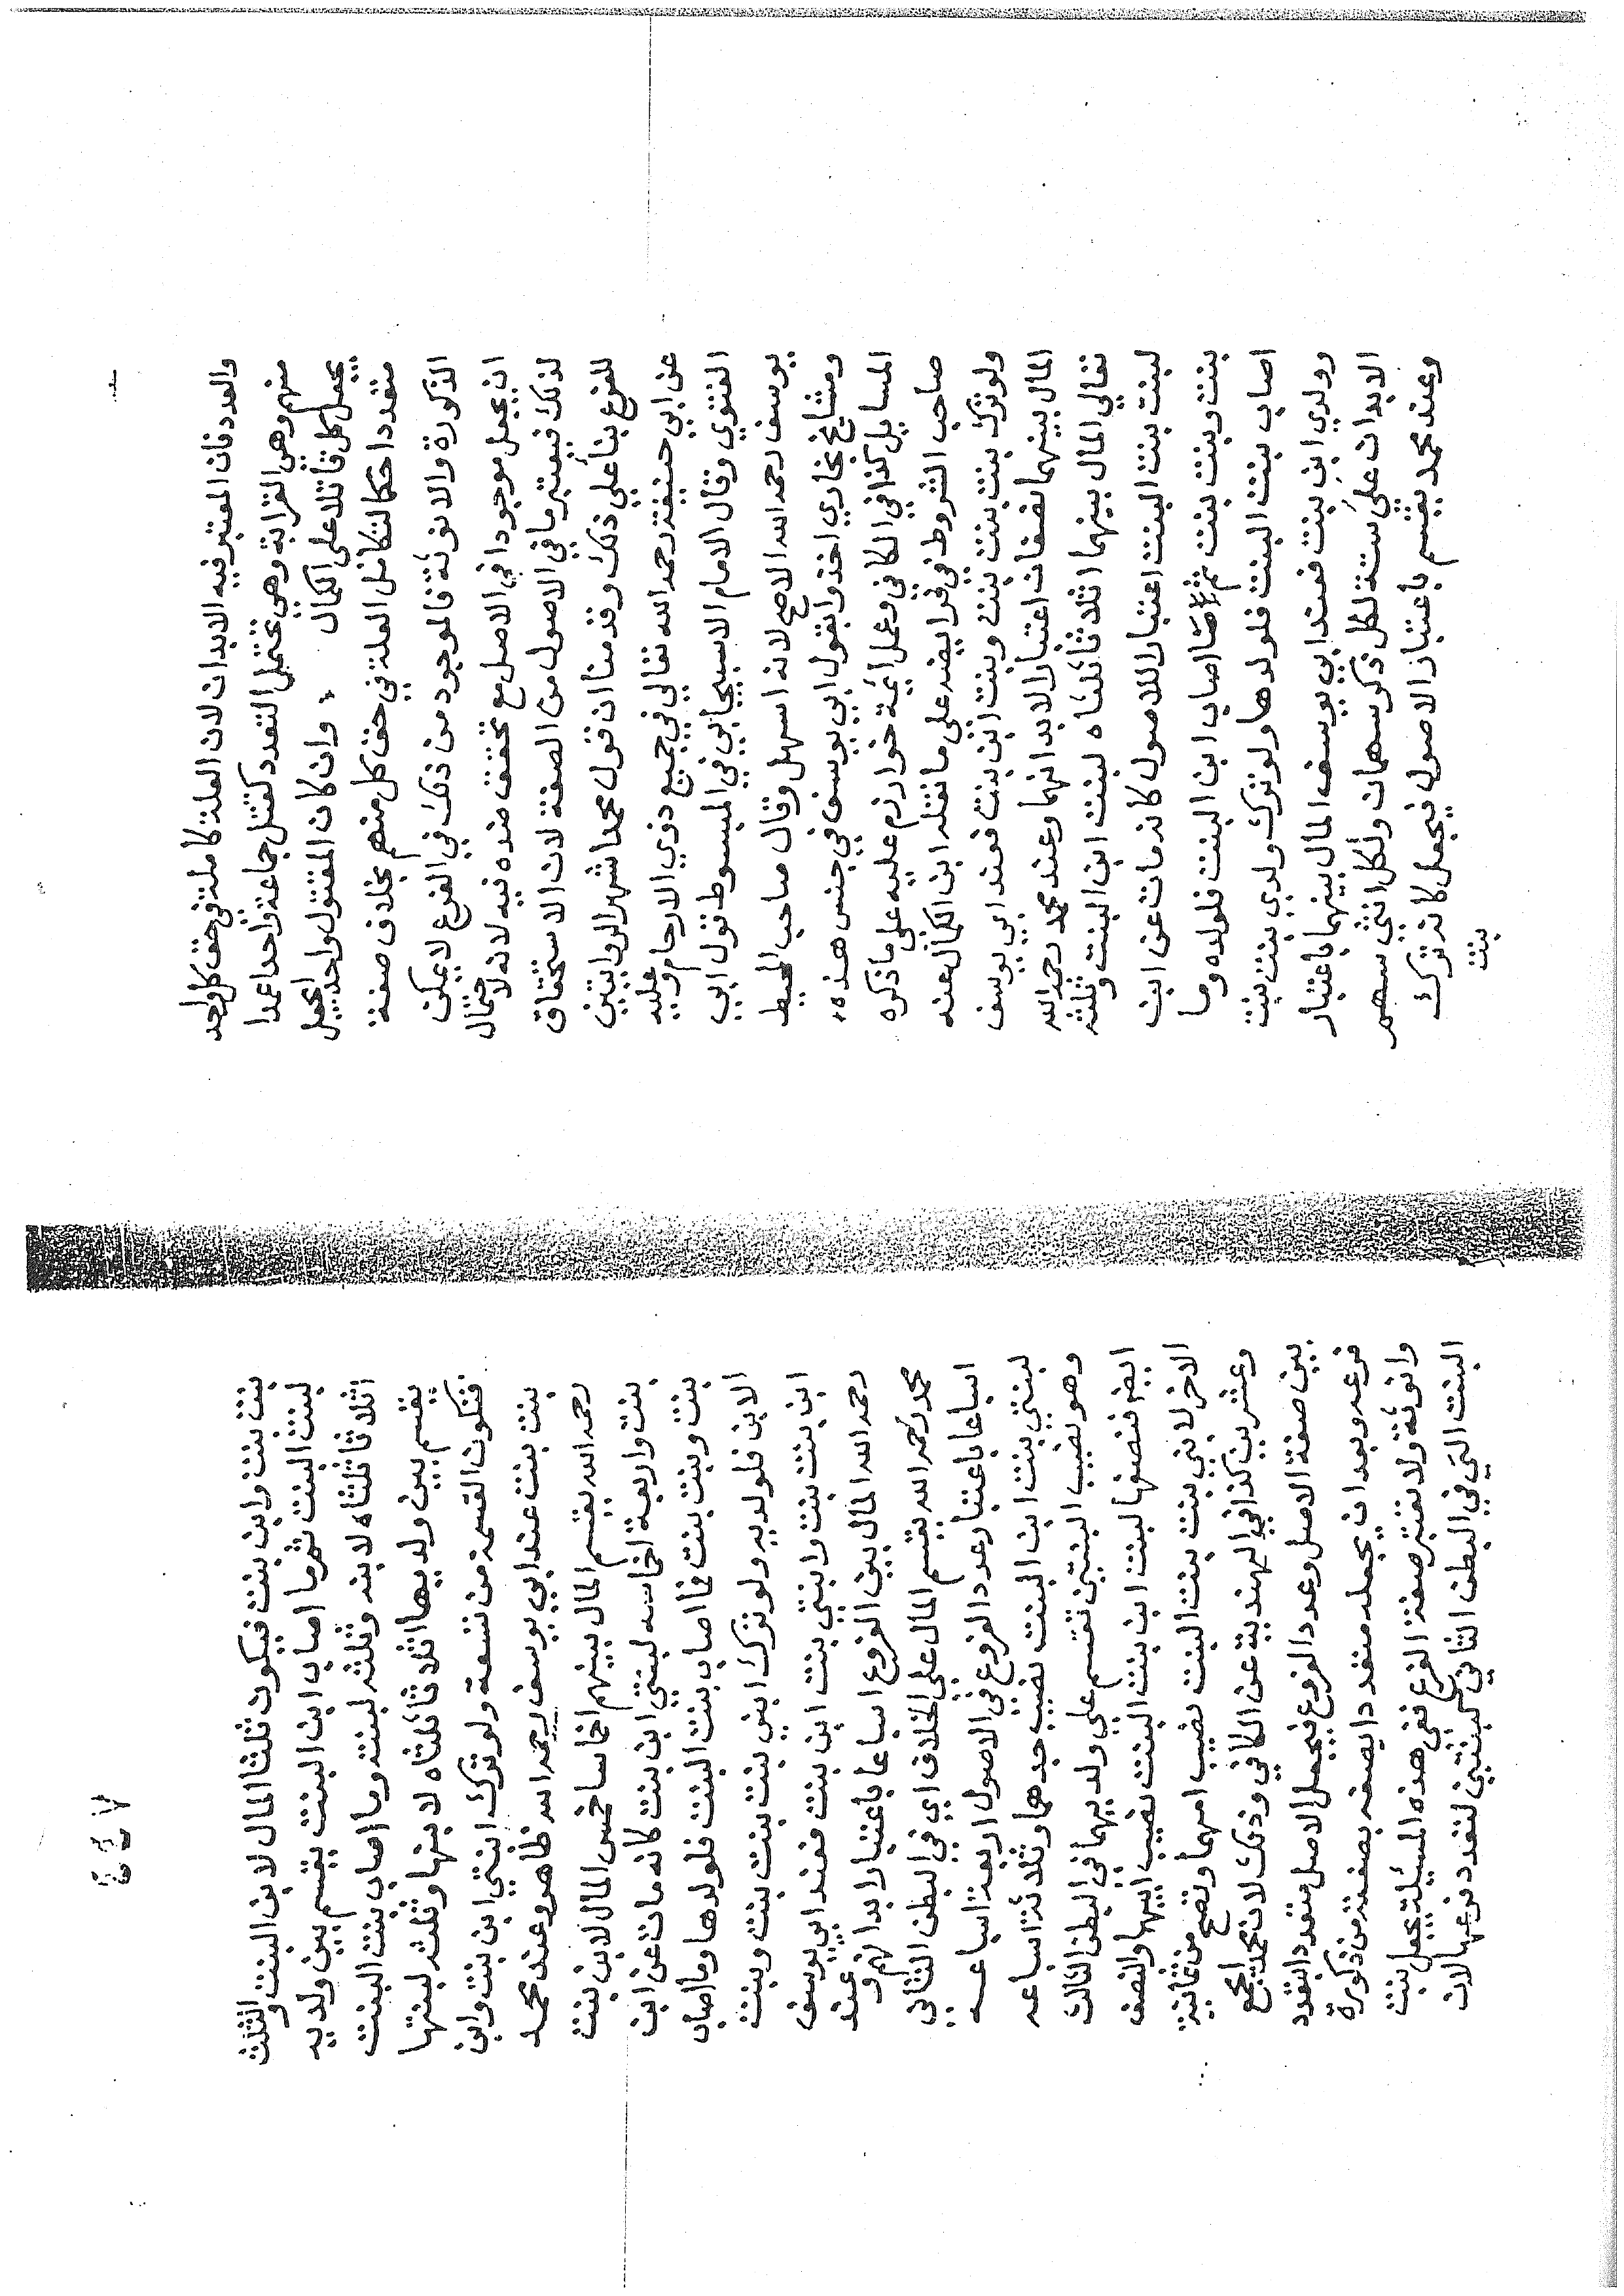 والعدد فان المعتبر فيه الابدان لان العلة كاملة في حق كل واحد
منهم وهي القرابة وهي تحتمل التعدد كقتل جماعة واحدا عمدا
يجعل كل قاتلا على الكمال وان كان المقتول واحد يجعل
متعددا حكما لتكامل العلة في حق كل منهم بخلاف صفة
الذكورة والانوثة فالموجود من ذلك في الفرع لا يمكن
ان يجعل موجودا في الاصل مع تحقق ضده فيه لانه لا حتمال
لذلك فيعتبر ما في الاصول من الصفة لان الاستحقاق
للفرع بناء علي ذلك وقدمنا ان قول محمد اشهر الروايتين
عن ابي حنيفة رحمه الله تعالي في جميع ذوي الارحام وعليه
الفتوي وقال الامام الاسبيجابي في المبسوط قول ابي
يوسف رحمه الله الاصح لانه اسهل وقال صاحب المحيط
ومشايخ بخاري اخذوا بقول ابي يوسف في جنس هذه
المسايل كذا في الكافي وعمل ائمة خوارزم عليه علي ما ذكره
صاحب الشروط في فرايضه علي ما نقله ابن الكمال عنه
ولو ترك بنت بنت بنت وبنت ابن بنت فعند ابي يوسف
المال بينهما نصفان اعتبارا لابدانهما وعند محمد رحمه الله
تعالي المال بينهما اثلاثا ثلثاه لبنت ابن البنت وثلثه
لبنت بنت البنت اعتبارا للاصول كانه مات عن ابن
بنت وبنت بنت ثم ما اصاب ابن البنت فلولده وما
اصاب بنت البنت فلولدها ولو ترك ولدي بنت بنت
وولدي ابن بنت فعند ابي يوسف المال بينهما باعتبار
الابدان علي ستة لكل ذكر سهمان ولكل انثي سهم
وعند محمد يقسم باعتبار الاصول فيجعل كانه ترك
بنت
بنت بنت وابن بنت فيكون ثلثا المال لابن البنت والثلث
لبنت البنت ثم ما اصاب ابن البنت يقسم بين ولديه
اثلاثا ثلثاه لابنه وثلثه لبنته وما اصاب بنت البنت
يقسم بين ولديها اثلاثا ثلثاه لابنها وثلثه لبنتها
فتكون القسمة من تسعة ولو ترك ابنتي ابن بنت وابن
بنت بنت عند ابي يوسف رحمه الله ظاهر وعند محمد
رحمه الله يقسم المال بينهم اخماسا خمس المال لابن بنت
بنت واربعة اخماسه لبنتي ابن بنت كانه مات عن ابن
بنت وبنت بنت فما اصاب بنت البنت فلولدها وما اصاب
الابن فلولديه ولو ترك ابني بنت بنت بنت وبنت
ابن بنت بنت وابنتي بنت ابن بنت فعند ابي يوسف
رحمه الله المال بين الفروع اسباعا باعتبار ابدانهم وعند
محمد رحمه الله يقسم المال علي الخلاف ابي في البطن الثاني
اسباعا باعتبار عدد الفروع في الاصول اربعة اسباعه
لبنتي بنت ابن البنت نصيب جدهما وثلاثة اسباعه
وهو نصيب البنتين تقسم علي ولديهما في البطن الثالث
ايضا فنصفها لبنت ابن بنت البنت نصيب ابيها والنصف
الاخر لابني بنت بنت البنت نصيب امهما وتصح من ثمانية
وعشرين كذا في الهندية عن الكافي وذلك لان محمد الجمع
بين صفة الاصل وعدد الفروع فيجعل الاصل متعددا بتعدد
فرعه وبعد ان يجعله متعددا يصفه بصفته من ذكورة
وانوثة ولا تعتبر صفة الفرع ففي هذه المسئلة يجعل بنت
البنت التي في البطن الثاني كبنتين لتعدد فرعها لان